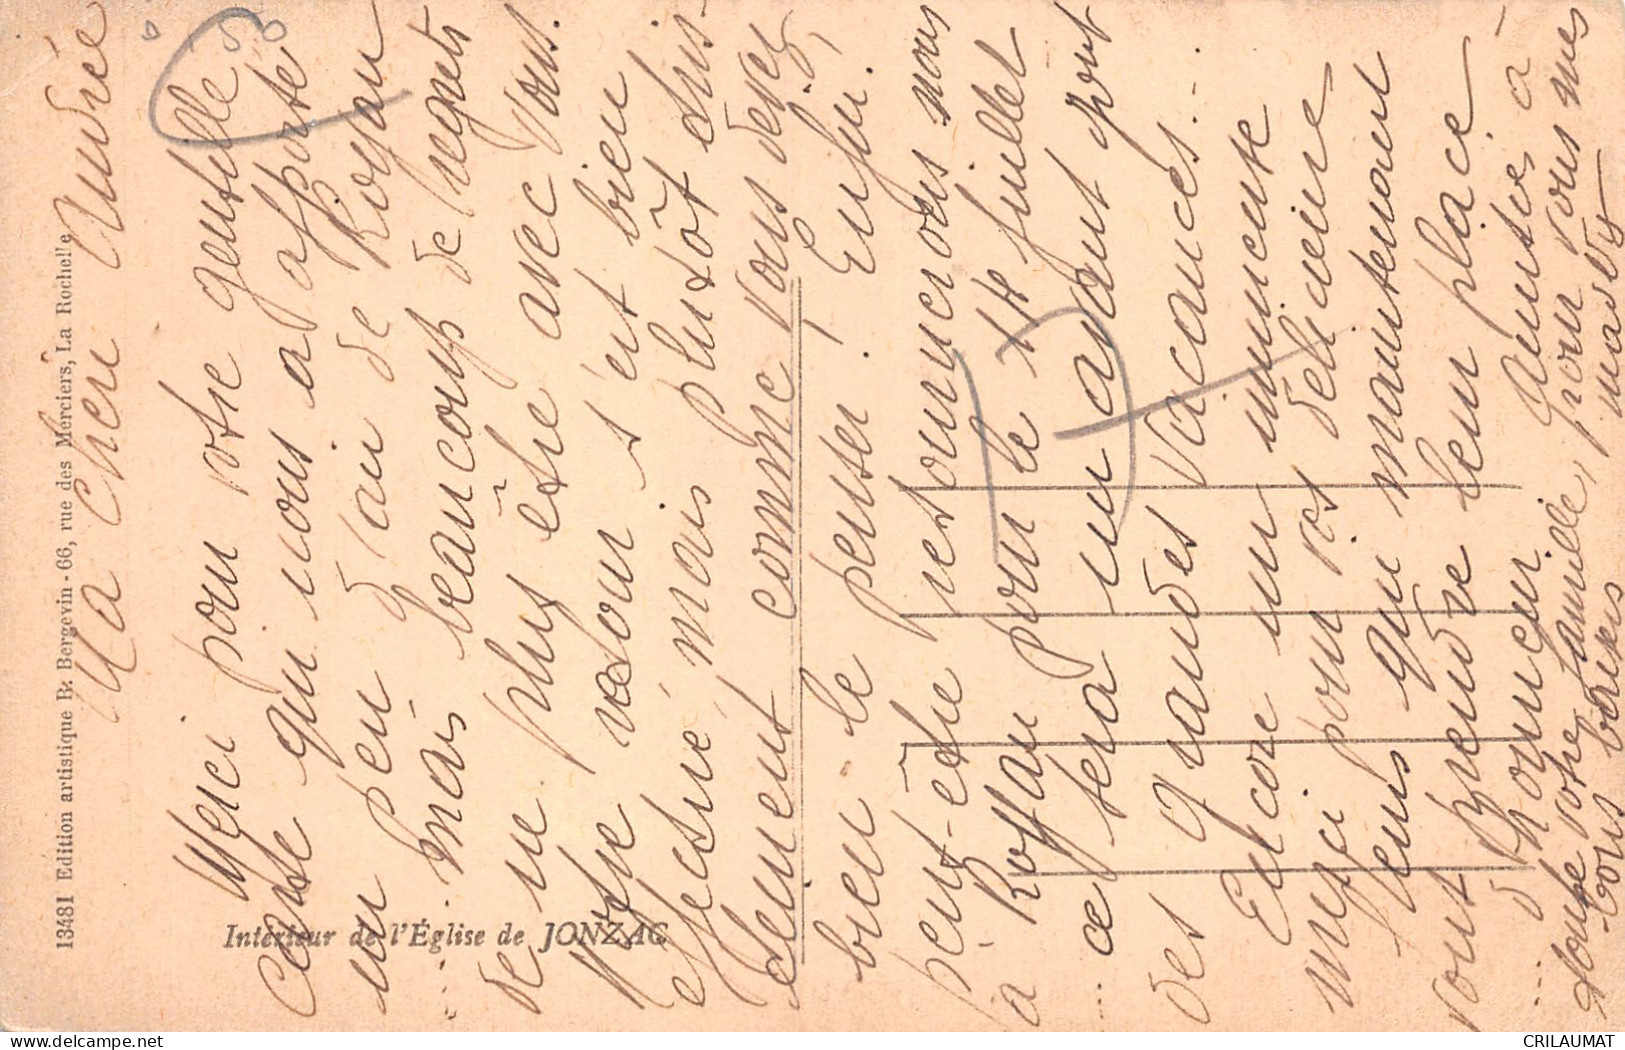 Ma chère Andrée
Merci pour votre gentille
carte qui nous a apporté
un peu d'air de Royan
... mais beaucoup de regrets
de ne plus être avec vous.
Notre retour s'est bien
effectué, mais plutôt tris-
tement comme vous devez
bien le penser! Enfin.
peut-être retournerons nous
à Royan pour le 14 juillet
... ce sera un avant goût
des grandes vacances...
Encore un immense
merci pour vos
fleurs qui maintenant
vont prendre leur place
... d'honneur. Amitiés à
toute votre famille, pour vous mes
bons baisers
13481 Edition artistique R. Bergevin - 66, rue des Merciers, La Rochelle
Intérieur de l'Église de JONZAC
CRILAUMAT